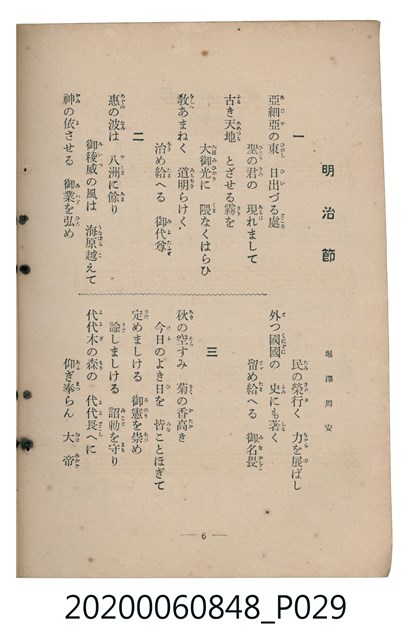 明治節
堀澤周安
一
亞細亞の東 日出づる處
聖の君の 現れまして
古き天地 とざせる霧を
大御光に 隈なくはらひ
敎あまねく 道明らけく
治め給へる 御代尊
二
惠の波は 八洲に餘り
御稜威の風は 海原越えて
神の依させる 御業を弘め
民の榮行く 力を展ばし
外つ國國の 史にも著く
留め給へる 御名畏
三
秋の空すみ 菊の香高き
今日のよき日を 皆ことほぎて
定めましける 御憲を崇め
諭しましける 詔勅を守り
代代木の森の 代代長へに
仰ぎ奉らん 大帝
— 6 —
20200060848_P029